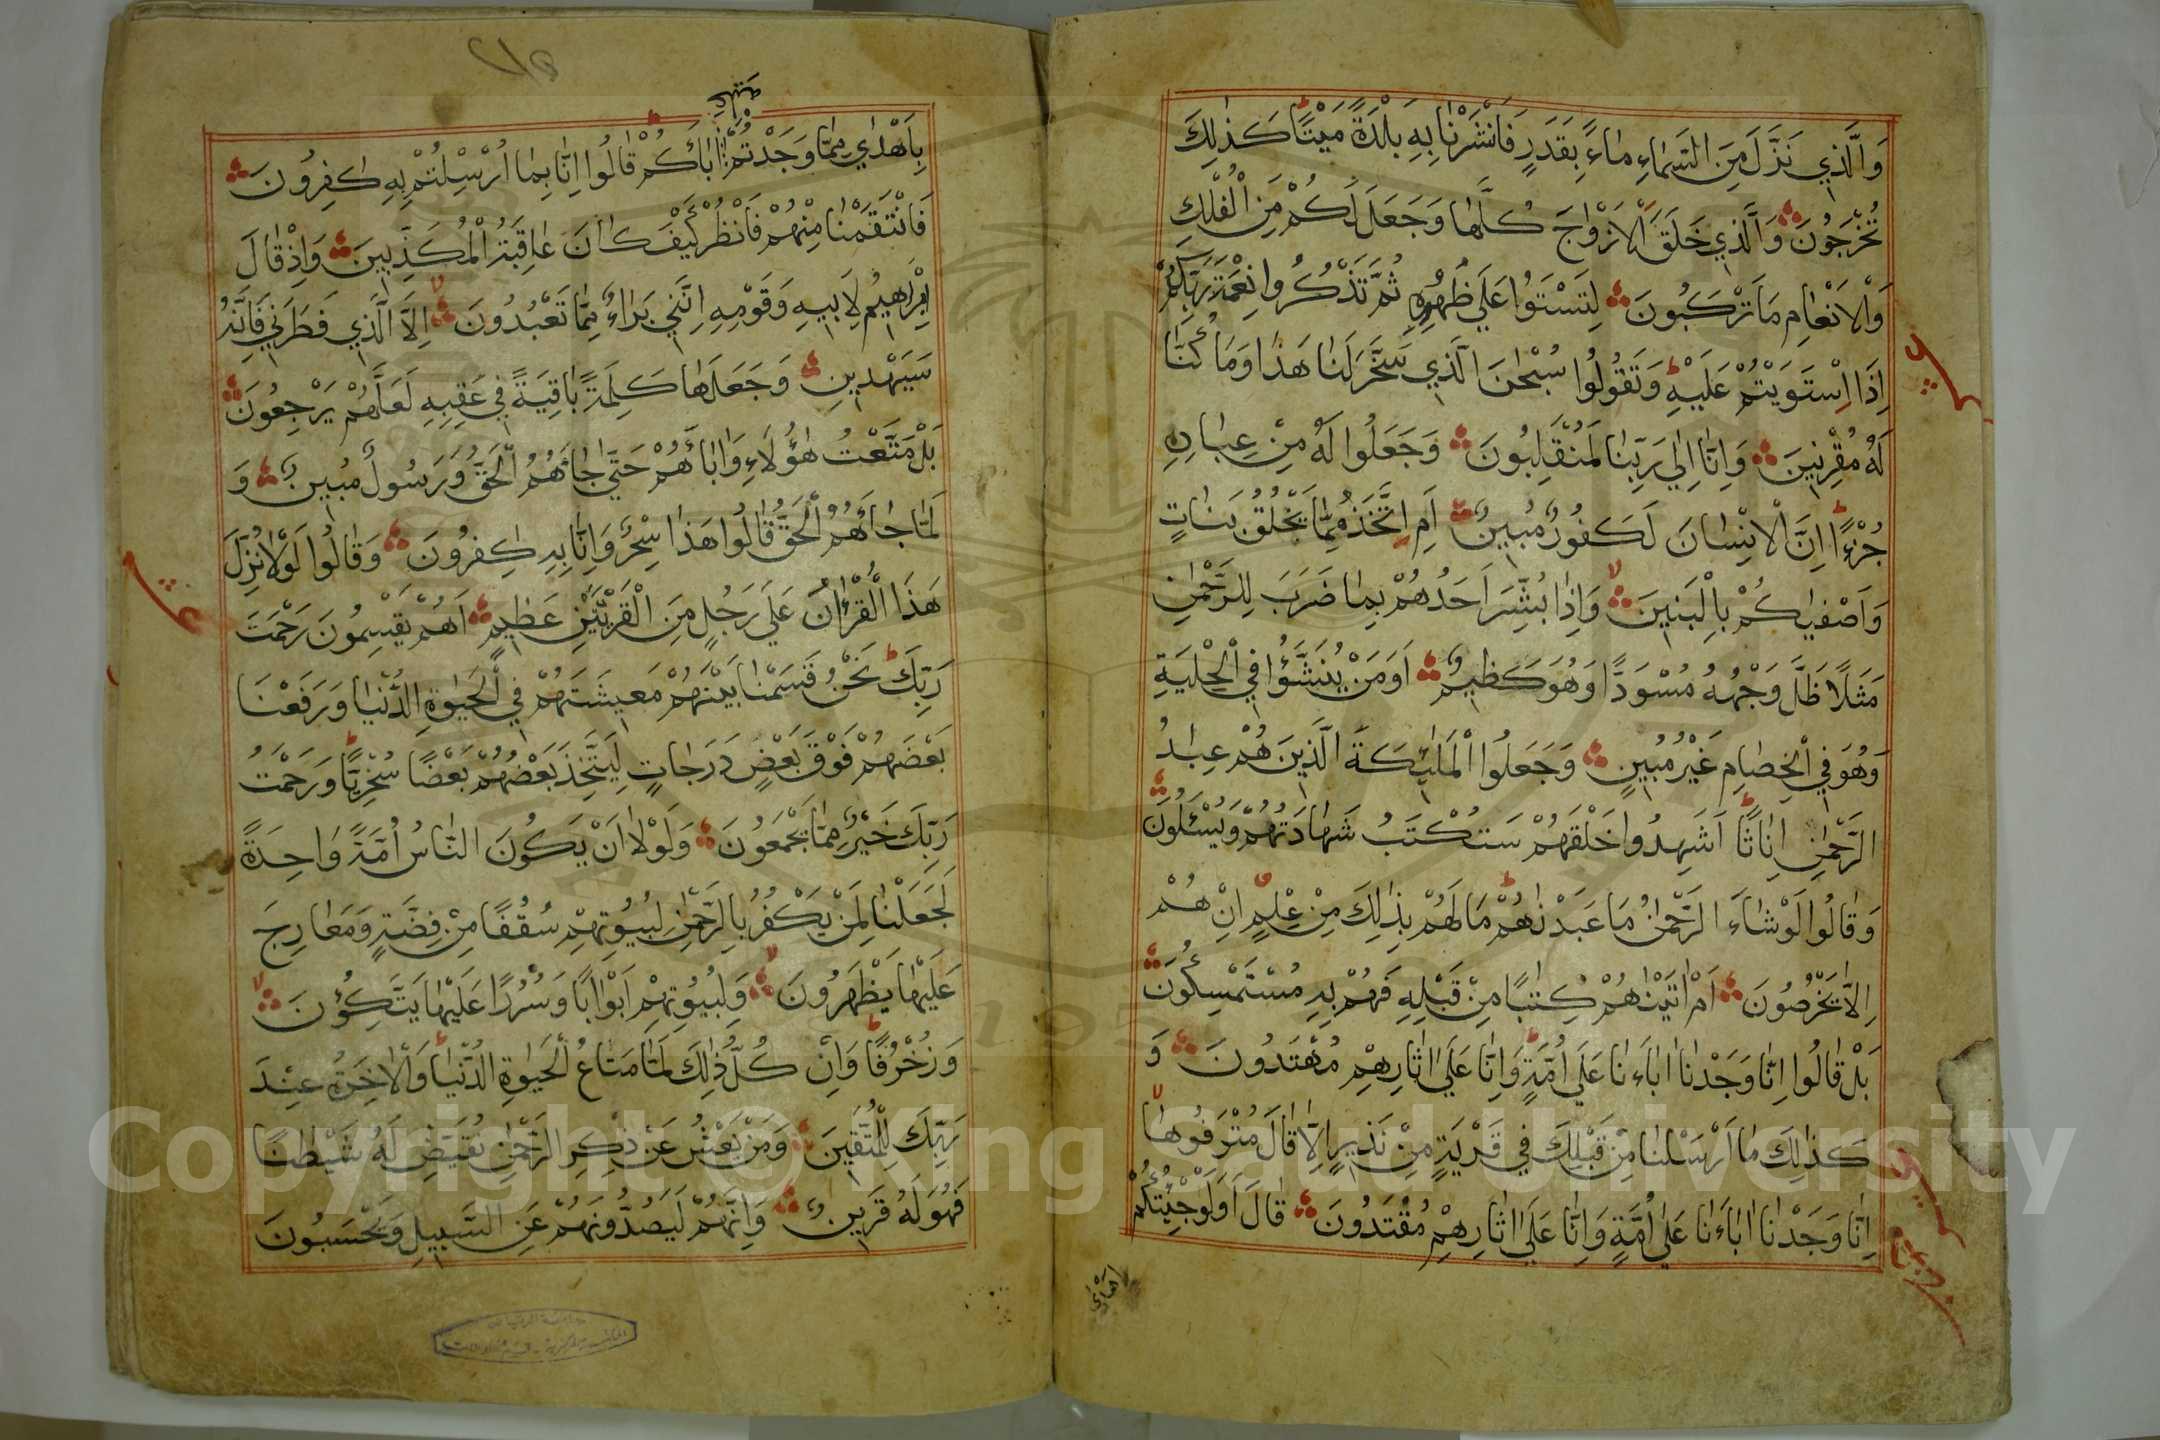 وَالَّذِي نَزَّلَ مِنَ السَّمَاءِ مَاءً بِقَدَرٍ فَأَنْشَرْنَا بِهِ بَلْدَةً مَيْتًا كَذٰلِكَ
تُخْرَجُونَ وَالَّذِي خَلَقَ الْأَزْوَاجَ كُلَّهَا وَجَعَلَ لَكُمْ مِنَ الْفُلْكِ
وَالْأَنْعَامِ مَا تَرْكَبُونَ لِتَسْتَوُا عَلَي ظُهُورِهِ ثُمَّ تَذْكُرُوا نِعْمَةَ رَبِّكُمْ
إِذَا اسْتَوَيْتُمْ عَلَيْهِ وَتَقُولُوا سُبْحٰنَ الَّذِي سَخَّرَ لَنَا هٰذَا وَمَا كُنَّا
لَهُ مُقْرِنِينَ وَإِنَّا إِلٰي رَبِّنَا لَمُنْقَلِبُونَ وَجَعَلُوا لَهُ مِنْ عِبَادِهِ
جُزْءًا إِنَّ الْإِنْسَانَ لَكَفُورٌ مُبِينٌ أَمِ اتَّخَذَ مِمَّا يَخْلُقُ بَنَاتٍ
وَأَصْفٰيكُمْ بِالْبَنِينَ وَإِذَا بُشِّرَ أَحَدُهُمْ بِمَا ضَرَبَ لِلرَّحْمٰنِ
مَثَلًا ظَلَّ وَجْهُهُ مُسْوَدًّا وَهُوَ كَظِيمٌ أَوَمَنْ يُنَشَّؤُا فِي الْحِلْيَةِ
وَهُوَ فِي الْخِصَامِ غَيْرُ مُبِينٍ وَجَعَلُوا الْمَلٰئِكَةَ الَّذِينَ هُمْ عِبَادُ
الرَّحْمٰنِ إِنَاثًا أَشَهِدُوا خَلْقَهُمْ سَتُكْتَبُ شَهَادَتُهُمْ وَيُسْئَلُونَ
وَقَالُوا لَوْ شَاءَ الرَّحْمٰنُ مَا عَبَدْنٰهُمْ مَا لَهُمْ بِذٰلِكَ مِنْ عِلْمٍ إِنْ هُمْ
إِلَّا يَخْرُصُونَ أَمْ اٰتَيْنٰهُمْ كِتٰبًا مِنْ قَبْلِهِ فَهُمْ بِهِ مُسْتَمْسِكُونَ
بَلْ قَالُوا إِنَّا وَجَدْنَا اٰبَاءَنَا عَلَي أُمَّةٍ وَإِنَّا عَلَي اٰثَارِهِمْ مُهْتَدُونَ وَ
كَذٰلِكَ مَا أَرْسَلْنَا مِنْ قَبْلِكَ فِي قَرْيَةٍ مِنْ نَذِيرٍ إِلَّا قَالَ مُتْرَفُوهَا
إِنَّا وَجَدْنَا اٰبَاءَنَا عَلَي أُمَّةٍ وَإِنَّا عَلَي اٰثَارِهِمْ مُقْتَدُونَ قَالَ أَوَلَوْ جِئْتُكُمْ
بِأَهْدٰي مِمَّا وَجَدْتُمْ عَلَيْهِ اٰبَاءَكُمْ قَالُوا إِنَّا بِمَا أُرْسِلْتُمْ بِهِ كٰفِرُونَ
فَانْتَقَمْنَا مِنْهُمْ فَانْظُرْ كَيْفَ كَانَ عَاقِبَةُ الْمُكَذِّبِينَ وَإِذْ قَالَ
إِبْرٰهِيمُ لِأَبِيهِ وَقَوْمِهِ إِنَّنِي بَرَاءٌ مِمَّا تَعْبُدُونَ إِلَّا الَّذِي فَطَرَنِي فَإِنَّهُ
سَيَهْدِينِ وَجَعَلَهَا كَلِمَةً بَاقِيَةً فِي عَقِبِهِ لَعَلَّهُمْ يَرْجِعُونَ
بَلْ مَتَّعْتُ هٰؤُلَاءِ وَاٰبَاءَهُمْ حَتَّي جَاءَهُمُ الْحَقُّ وَرَسُولٌ مُبِينٌ وَ
لَمَّا جَاءَهُمُ الْحَقُّ قَالُوا هٰذَا سِحْرٌ وَإِنَّا بِهِ كٰفِرُونَ وَقَالُوا لَوْلَا نُزِّلَ
هٰذَا الْقُرْاٰنُ عَلَي رَجُلٍ مِنَ الْقَرْيَتَيْنِ عَظِيمٍ أَهُمْ يَقْسِمُونَ رَحْمَتَ
رَبِّكَ نَحْنُ قَسَمْنَا بَيْنَهُمْ مَعِيشَتَهُمْ فِي الْحَيٰوةِ الدُّنْيَا وَرَفَعْنَا
بَعْضَهُمْ فَوْقَ بَعْضٍ دَرَجَاتٍ لِيَتَّخِذَ بَعْضُهُمْ بَعْضًا سُخْرِيًّا وَرَحْمَتُ
رَبِّكَ خَيْرٌ مِمَّا يَجْمَعُونَ وَلَوْلَا أَنْ يَكُونَ النَّاسُ أُمَّةً وَاحِدَةً
لَجَعَلْنَا لِمَنْ يَكْفُرُ بِالرَّحْمٰنِ لِبُيُوتِهِمْ سُقُفًا مِنْ فِضَّةٍ وَمَعَارِجَ
عَلَيْهَا يَظْهَرُونَ وَلِبُيُوتِهِمْ أَبْوَابًا وَسُرُرًا عَلَيْهَا يَتَّكِؤُنَ
وَزُخْرُفًا وَإِنْ كُلُّ ذٰلِكَ لَمَّا مَتَاعُ الْحَيٰوةِ الدُّنْيَا وَالْاٰخِرَةُ عِنْدَ
رَبِّكَ لِلْمُتَّقِينَ وَمَنْ يَعْشُ عَنْ ذِكْرِ الرَّحْمٰنِ نُقَيِّضْ لَهُ شَيْطٰنًا
فَهُوَ لَهُ قَرِينٌ وَإِنَّهُمْ لَيَصُدُّونَهُمْ عَنِ السَّبِيلِ وَيَحْسَبُونَ
Copyright © King Saud University